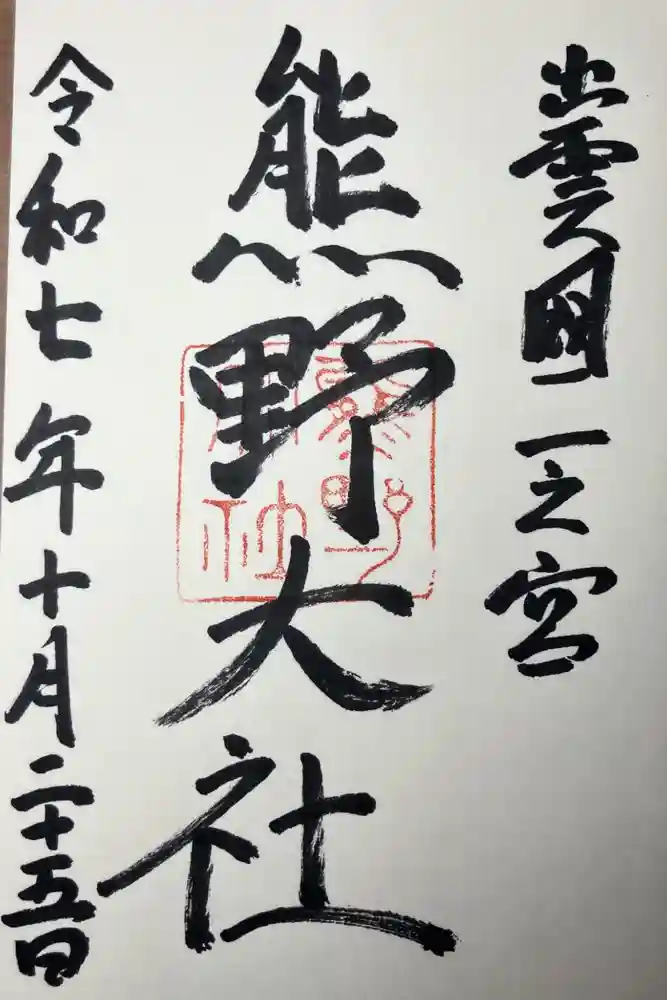 出雲國一之宮
熊野大社
熊野大社
令和七年十月二十五日